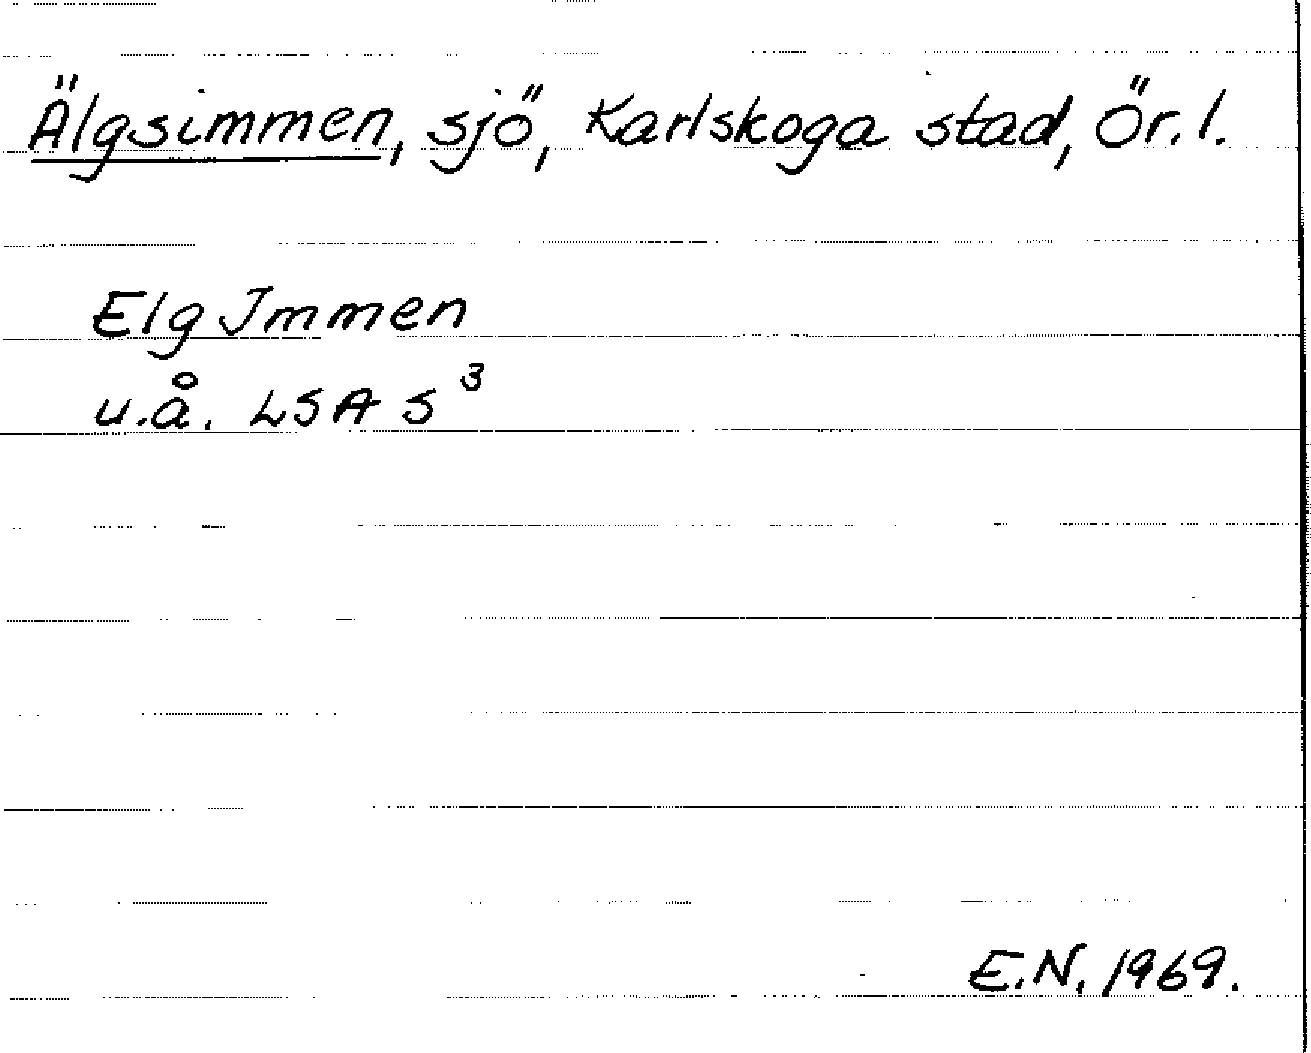 Älgsimmen, sjö, Karlskoga stad, Ör. l.
Elg Immen
u.å. LSA S³
E.N. 1969.